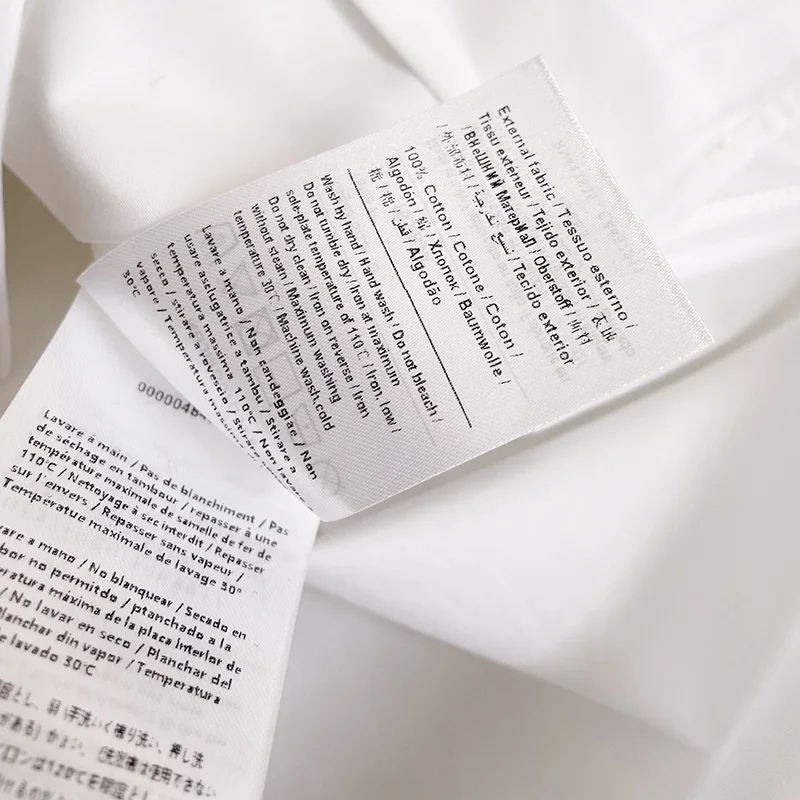 External fabric / Tessuo esterno /
Tissu extérieur / Tejido exterior / 衣面
/ ВНеШНИЙ МатерИаЛ / Oberstoff / 面料
/ Tecido exterior
100% Cotton / Cotone / Coton /
Algodón / 棉 / Хлопок / Baumwolle /
棉 / 棉 / قطن / Algodão
Wash by hand / Hand wash / Do not bleach /
Do not tumble dry / Iron at maximum
sole-plate temperature of 110℃ / Iron, low /
Do not dry clean / Iron on reverse / Iron
without steam / Maximum washing
temperature 30℃ / Machine wash.cold
Lavare a mano / Non candeggiae / Non
usare asclugatrice a tambu / Stirare a
temperatura massima 110°C / Non lavare
secco / stirare a rovescio / Stirare
vapore / Temperatura massima
30℃
0000048
Lavare à main / Pas de blanchiment / Pas
de séchage en tambour / repasser à une
température maximale de samelle de fer de
110℃ / Nettoyage à sec interdit / Repasser
sur l'envers / Repasser sans vapeur /
Températue maximale de lavage 30°
are a mano / No blanquear / Secado en
bor no permitdo / ptanchado a la
eratura máxima de la placa interlor de
/ No lavar en seco / Planchar del
lanchar din vapor / Temperatura
e lavado 30℃
限度とし、弱い手洗いく振り洗い、押し洗
がある) かよい、(洗濯機は使用できない
イロンは120℃を限度とし